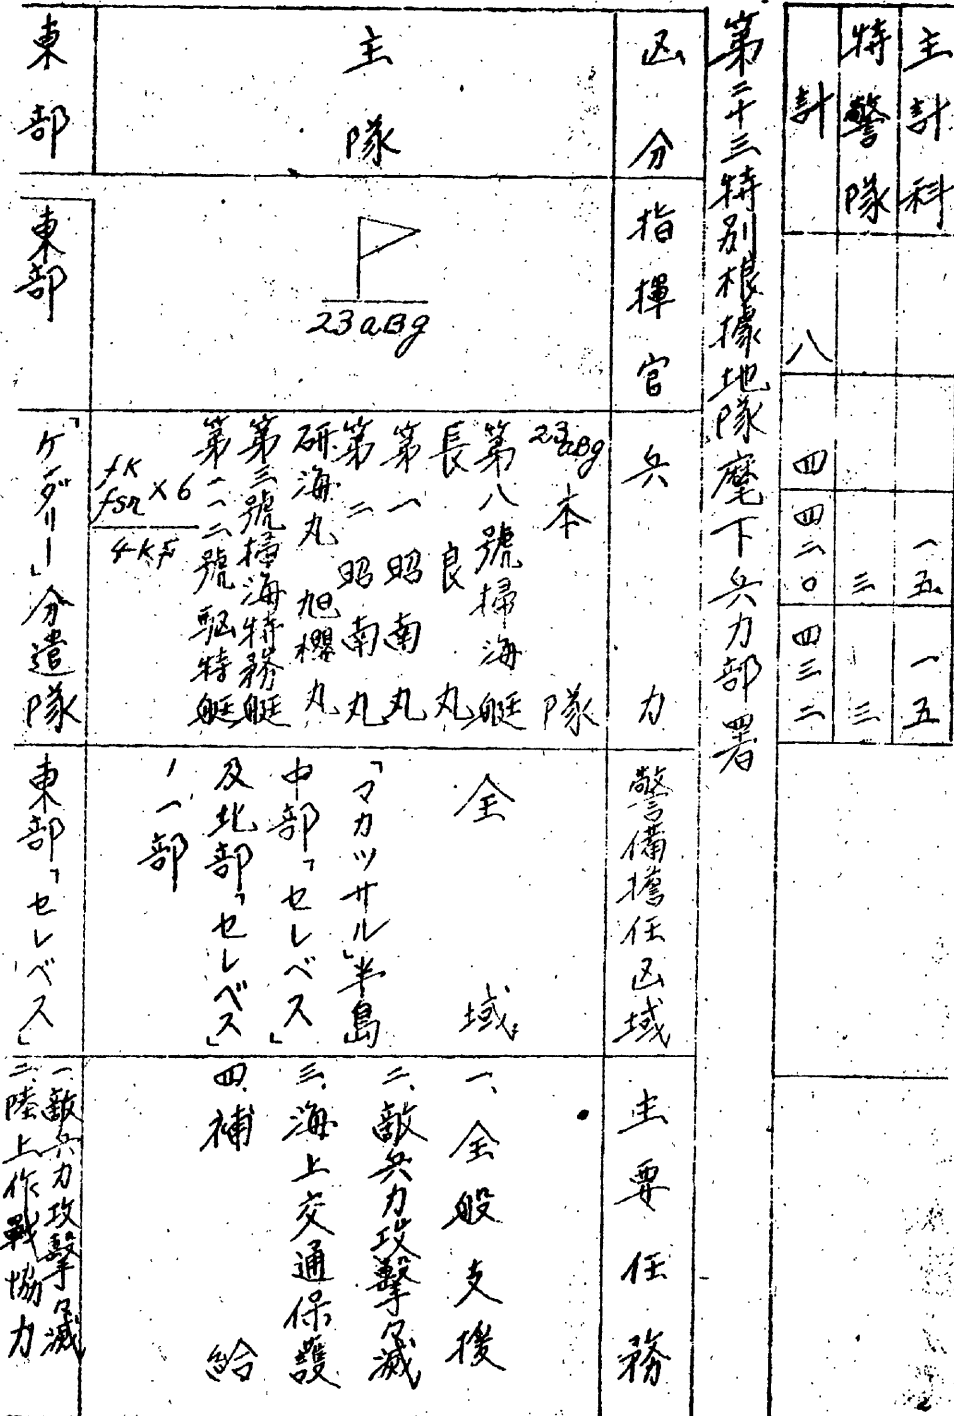 主計科 一五 一五
特警隊 三 三
計 八 四 四二〇 四三二
第二十三特別根據地隊麾下兵力部署
区分 指揮官 兵力 警備擔任区域 主要任務
主隊
23aBg
23aBg本隊
第八號掃海艇
長良丸
第一昭南丸
第二昭南丸
研海丸 旭櫻丸
第三號掃海特務艇
第一一二號駆特艇
fK
fsn × 6
全域
「マカッサル」半島
中部「セレベス」
及北部「セレベス」
ノ一部
一、全般支援
二、敵兵力攻撃撃滅
三、海上交通保護
四、補給
東部
東部
「ケンダリー」分遣隊
東部「セレベス」
一、敵兵力攻撃撃滅
二、陸上作戰協力